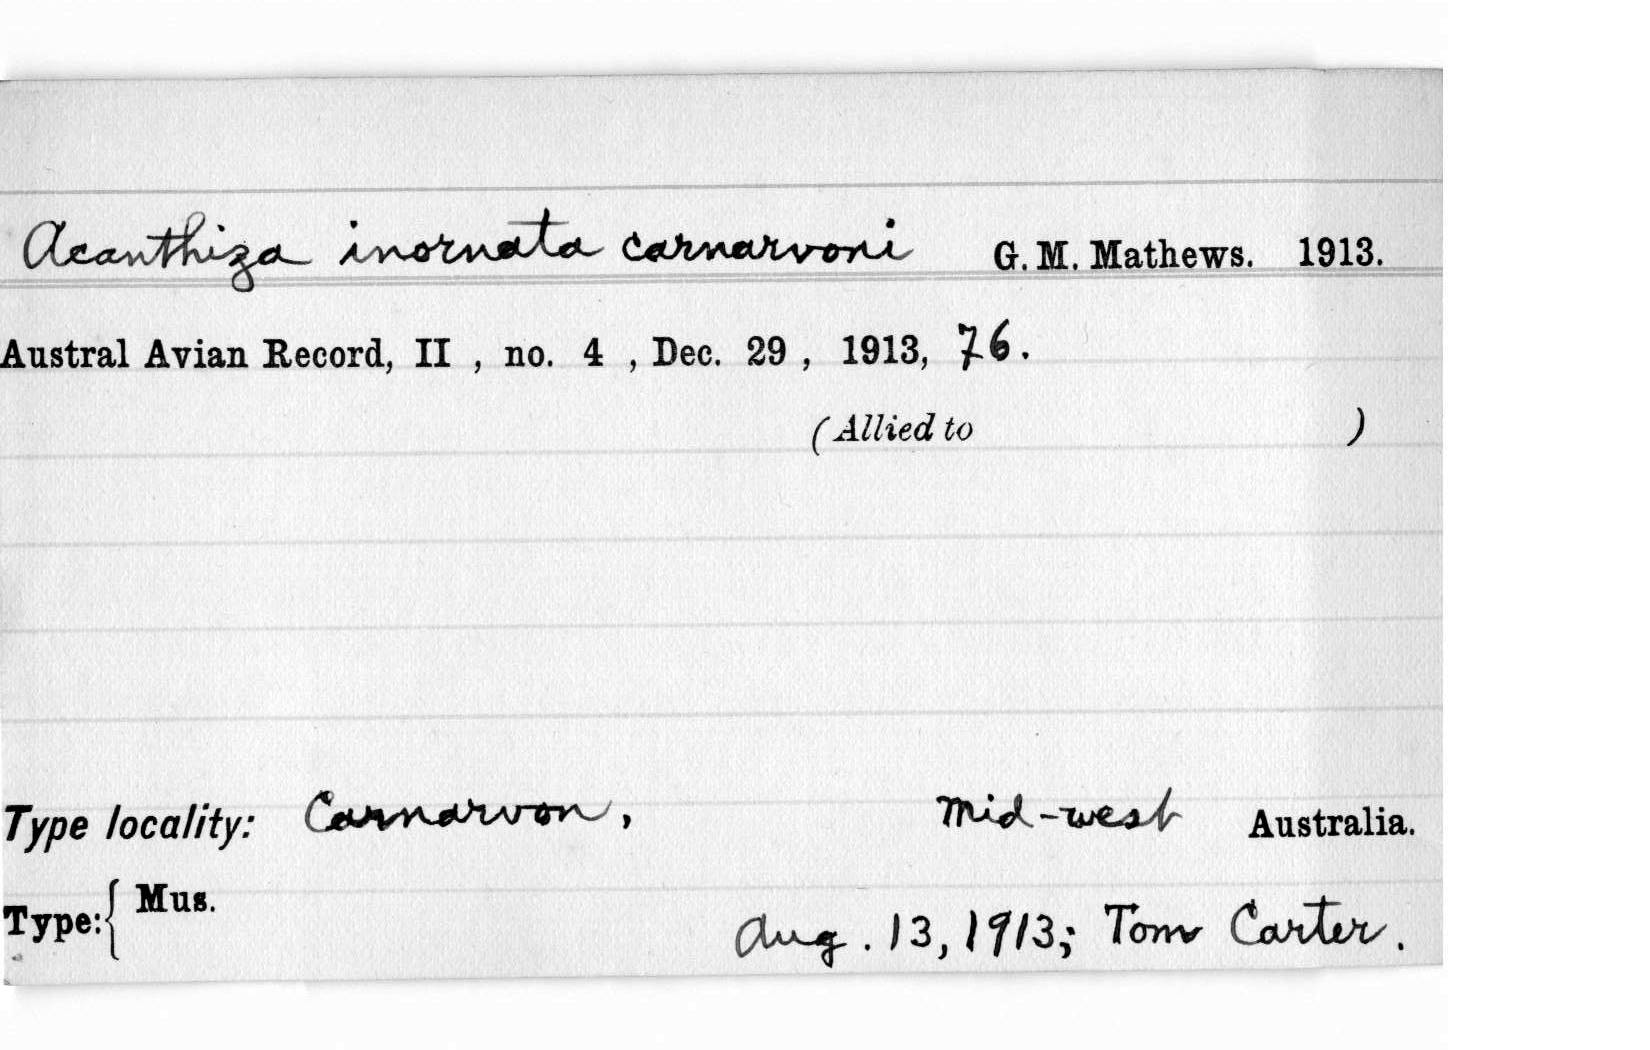 Acanthiza inornata carnarvoni G. M. Mathews. 1913.
Austral Avian Record, II , no. 4 , Dec. 29 , 1913, 76.
(Allied to )
Type locality: Carnarvon, Mid-west Australia.
Type: { Mus.
Aug. 13, 1913; Tom Carter.